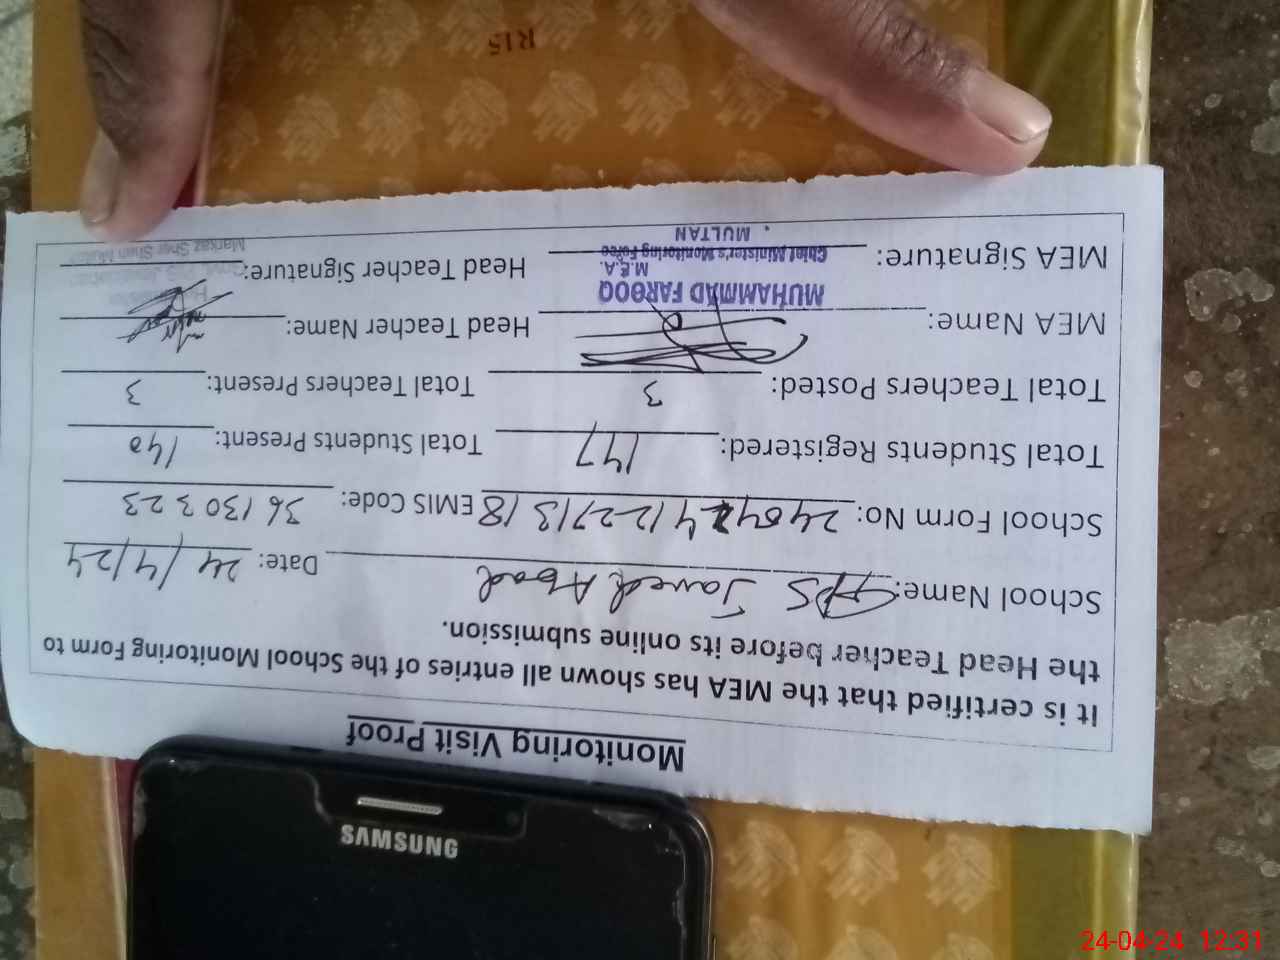 Monitoring Visit Proof
It is certified that the MEA has shown all entries of the School Monitoring Form to
the Head Teacher before its online submission.
School Name: GPS Javed Abad Date: 24/4/24
School Form No: EMIS Code: 36130323
Total Students Registered: 147 Total Students Present: 140
Total Teachers Posted: 3 Total Teachers Present: 3
MEA Name: Head Teacher Name:
MUHAMMAD FAROOQ
M.E.A.
MEA Signature: Head Teacher Signature:
Chief Minister's Monitoring Force
MULTAN
Markaz Sher Shah Multan
R15
SAMSUNG
24-04-24 12:31